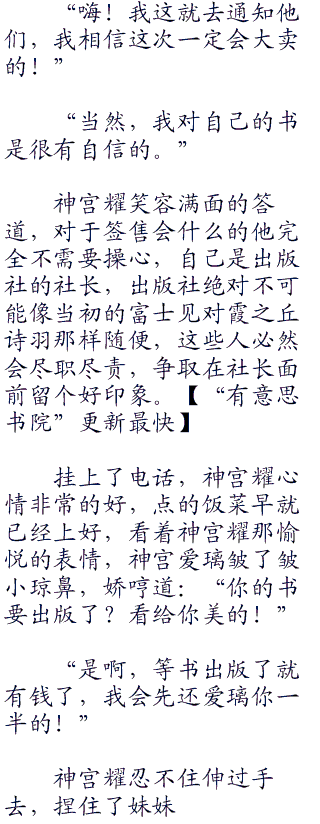 “嗨！我这就去通知他
们，我相信这次一定会大卖
的！”
“当然，我对自己的书
是很有自信的。”
神宫耀笑容满面的答
道，对于签售会什么的他完
全不需要操心，自己是出版
社的社长，出版社绝对不可
能像当初的富士见对霞之丘
诗羽那样随便，这些人必然
会尽职尽责，争取在社长面
前留个好印象。【“有意思
书院”更新最快】
挂上了电话，神宫耀心
情非常的好，点的饭菜早就
已经上好，看着神宫耀那愉
悦的表情，神宫爱璃皱了皱
小琼鼻，娇哼道：“你的书
要出版了？看给你美的！”
“是啊，等书出版了就
有钱了，我会先还爱璃你一
半的！”
神宫耀忍不住伸过手
去，捏住了妹妹